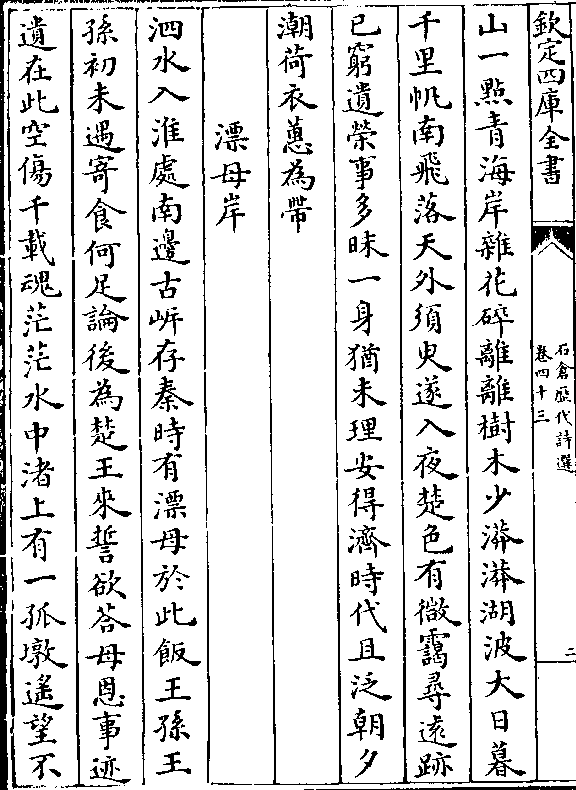 欽定四庫全書
石倉歷代詩選
卷四十三
二
山一點青海岸雜花碎離離樹木少漭漭湖波大日暮
千里帆南飛落天外須臾遂入夜楚色有微靄尋遠跡
已窮遺榮事多昧一身猶未理安得濟時代且泛朝夕
潮荷衣蕙為帶
漂母岸
泗水入淮處南邊古岍存秦時有漂母於此飯王孫王
孫初未遇寄食何足論後為楚王來誓欲荅母恩事迹
遺在此空傷千載魂茫茫水中渚上有一孤墩遙望不